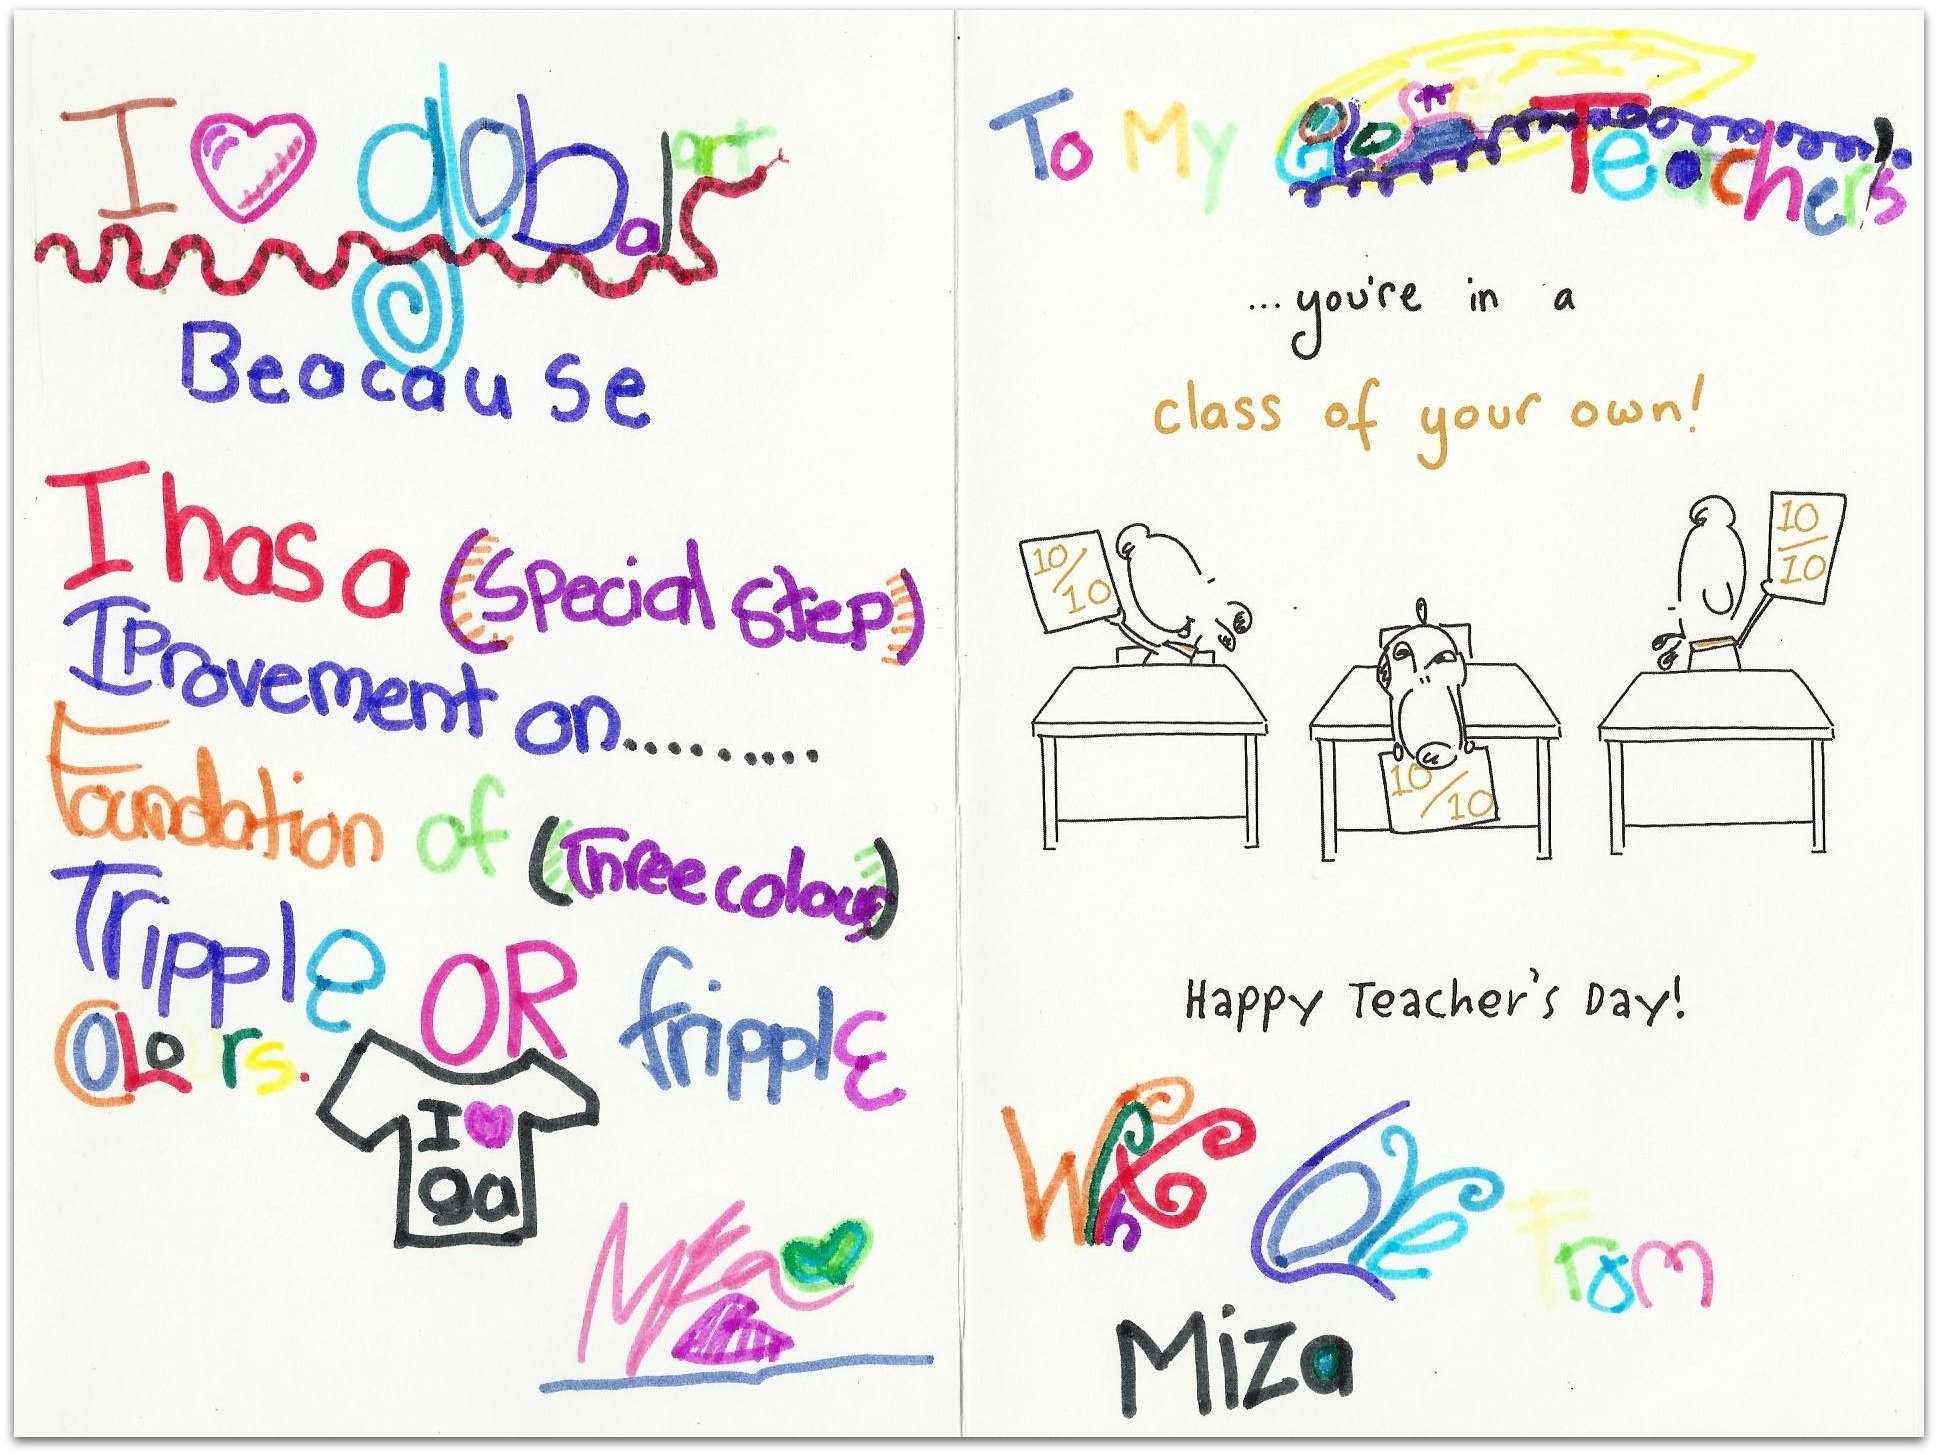 I global art
Beacause
I has a (special step)
Iprovement on.........
Foundation of (Three colour)
Tripple OR fripple
coLours.
I
ga
Miza
To My Teachers
...you're in a
class of your own!
10/10
10/10
10/10
Happy Teacher's Day!
With love From
Miza